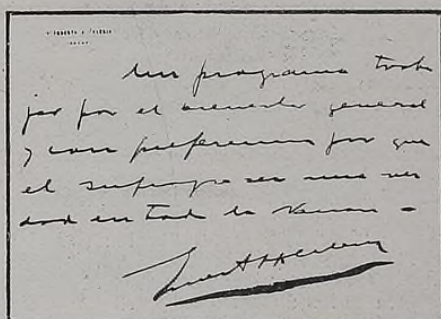 mi programa traba
jar por el acuerdo general
y con preferencia por que
el sufragio sea una ver
dad en toda la